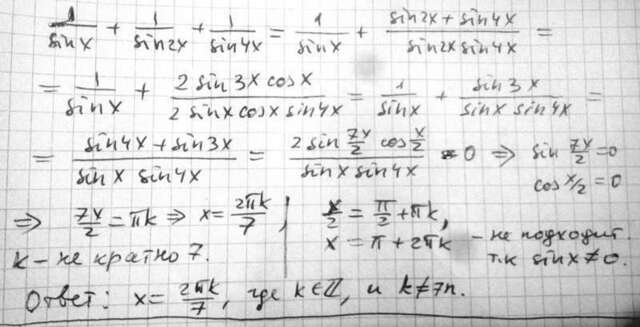 1/sinx + 1/sin2x + 1/sin4x = 1/sinx + (sin2x + sin4x)/(sin2x sin4x) =
= 1/sinx + (2 sin3x cosx)/(2 sinx cosx sin4x) = 1/sinx + sin3x/(sinx sin4x) =
= (sin4x + sin3x)/(sinx sin4x) = (2 sin 7x/2 cos x/2)/(sinx sin4x) = 0 ⇒ sin 7x/2 = 0
cos x/2 = 0
⇒ 7x/2 = πk ⇒ x = 2πk/7 ; x/2 = π/2 + πk,
к – не кратно 7. x = π + 2πk – не подходит.
т.к sinx ≠ 0.
Ответ: x = 2πk/7, где k ∈ ℤ, и k ≠ 7n.